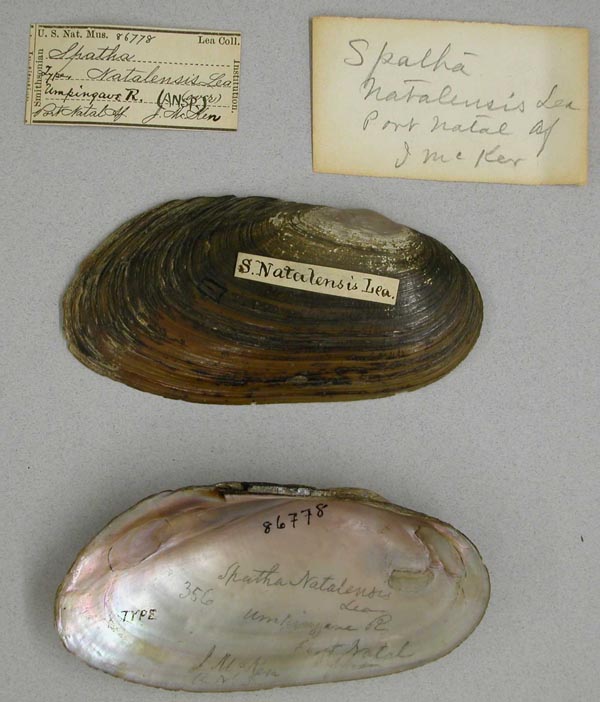 U. S. Nat. Mus. 86778 Lea Coll.
Smithsonian
Institution.
Spatha
Type Natalensis Lea
Umpingave R. (ANSP)
Port Natal Af J. McKen
Spatha
Natalensis Lea
Port Natal Af
J McKen
S. Natalensis Lea.
86778
Spatha Natalensis
356
Lea
TYPE
Umpingave R
Port Natal
J. McKen